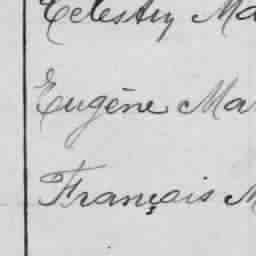 Celestin Ma
Eugène Ma
François M